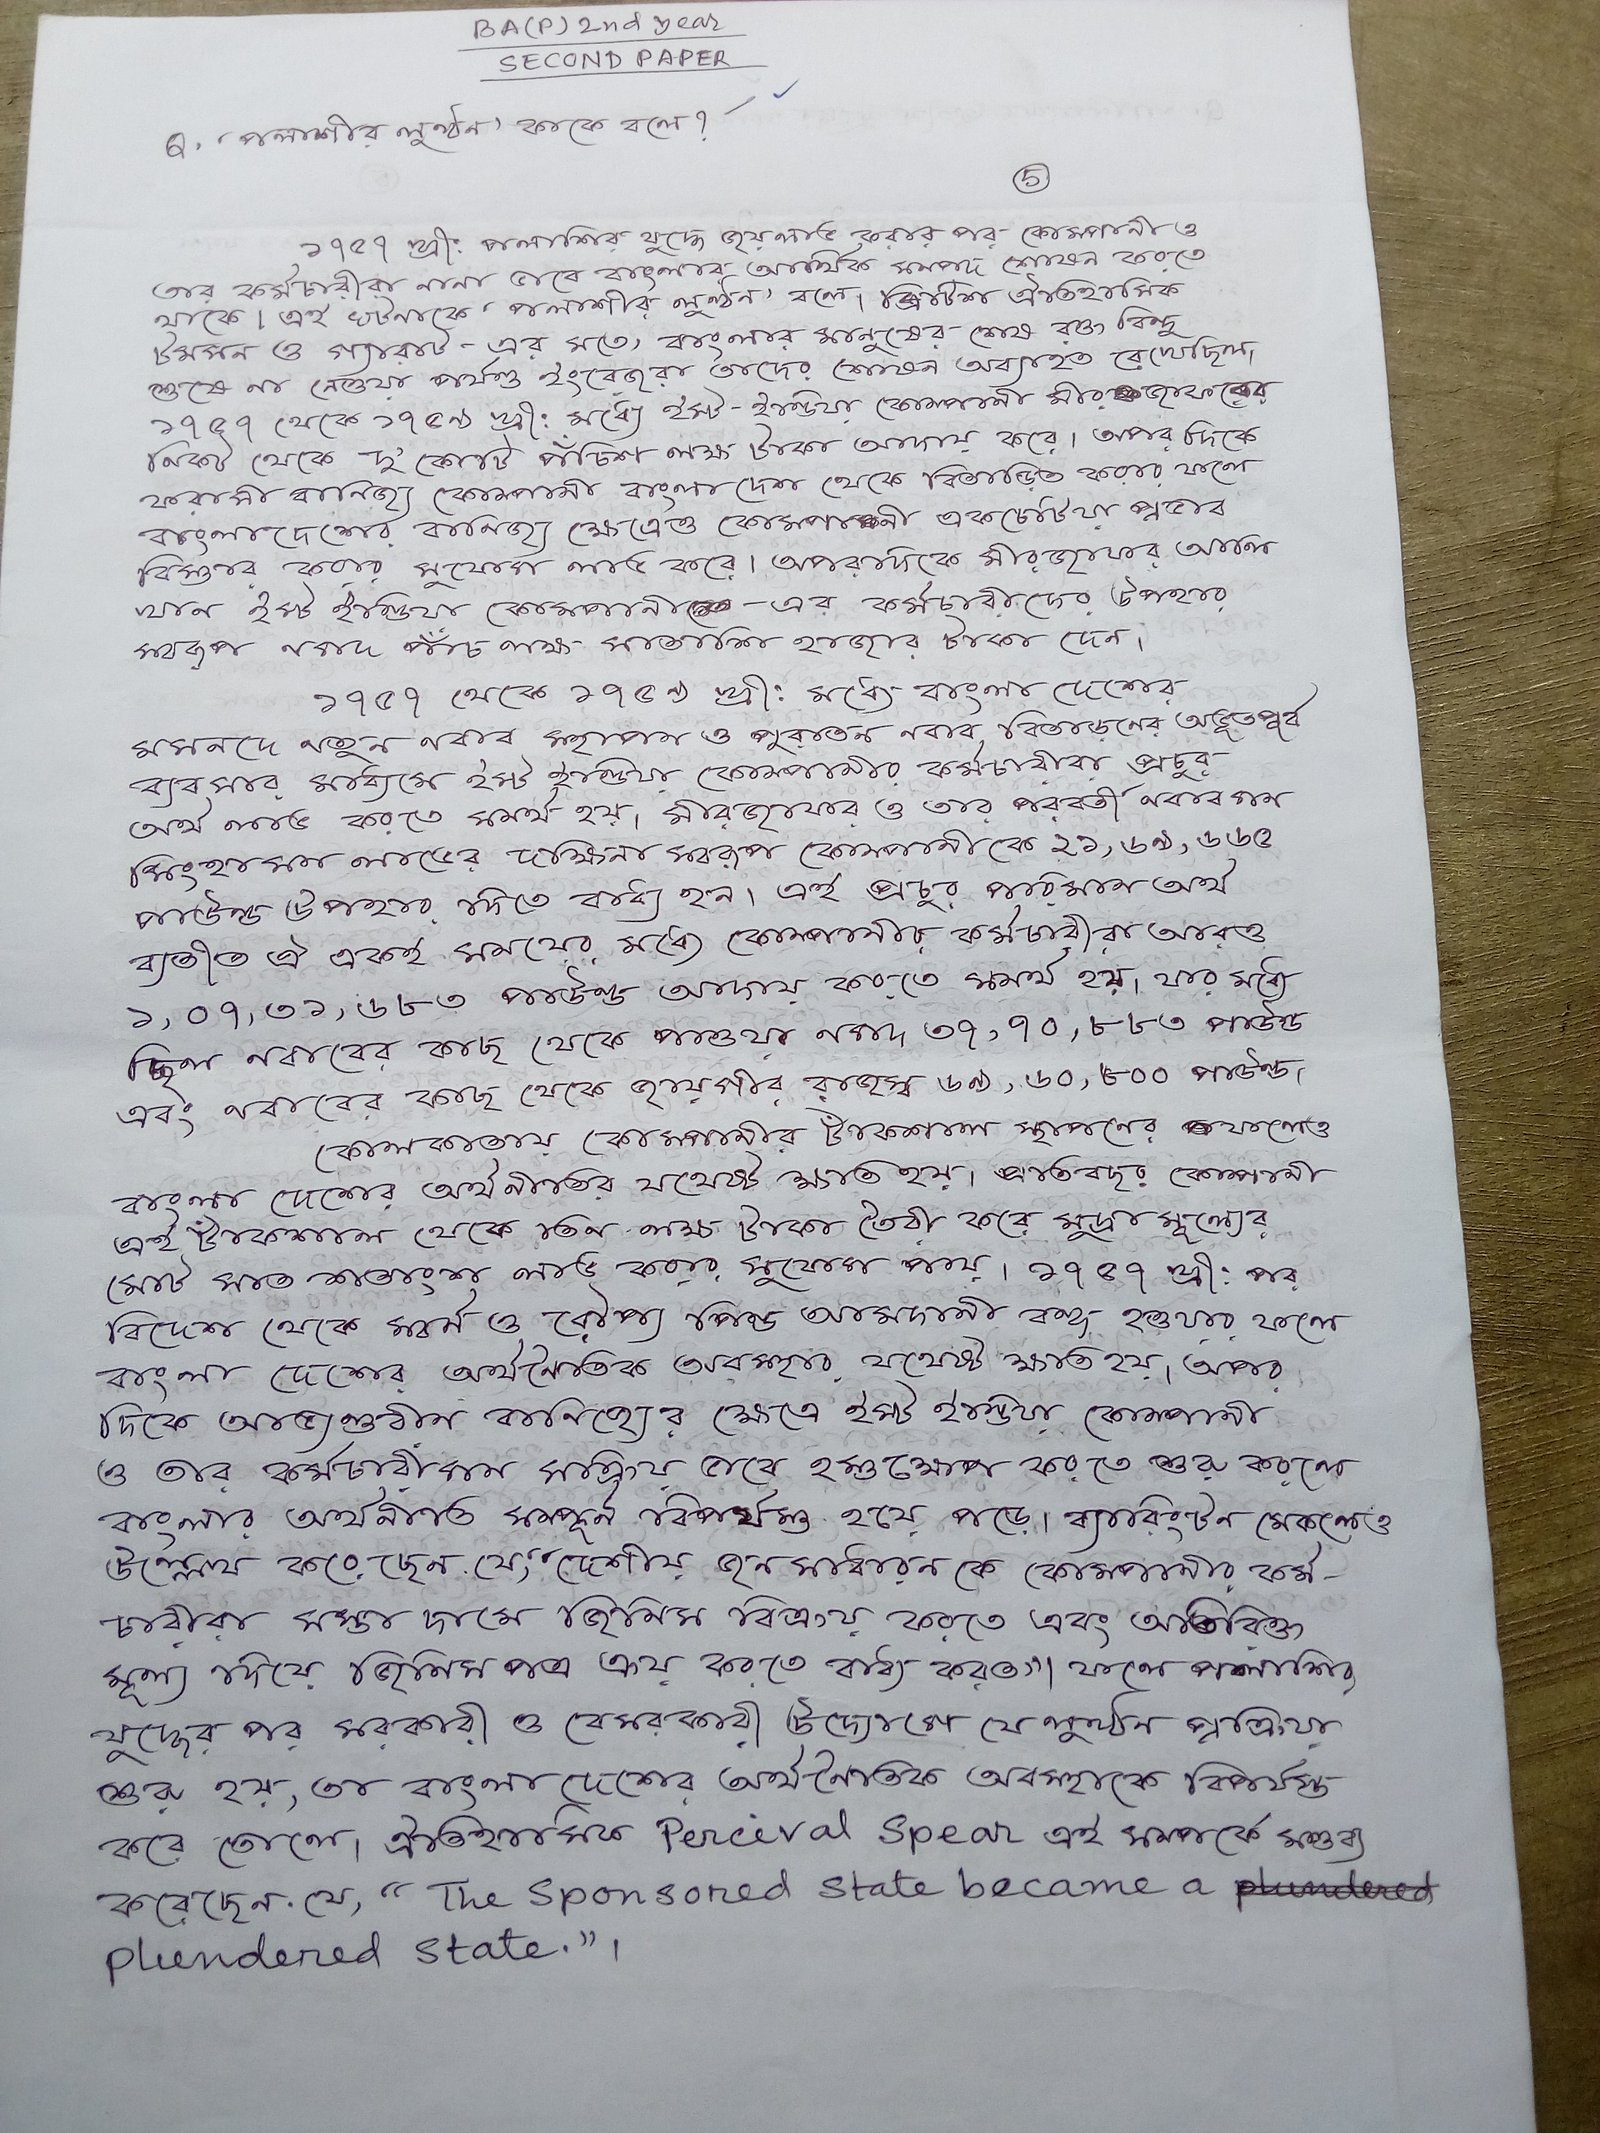 BA(P) 2nd year
SECOND PAPER
Q. 'পলাশীর লুণ্ঠন' কাকে বলে?
5
১৭৫৭ খ্রী: পলাশির যুদ্ধে জয়লাভ করার পর কোম্পানী ও
তার কর্মচারীরা নানা ভাবে বাংলার আর্থিক সম্পদ শোষন করতে
থাকে। এই ঘটনাকে 'পলাশীর লুণ্ঠন' বলে। ব্রিটিশ ঐতিহাসিক
টমসন ও গ্যারাট - এর মতে, বাংলার মানুষের শেষ রক্ত বিন্দু
শুষে না নেওয়া পর্যন্ত ইংরেজরা তাদের শোষন অব্যাহত রেখেছিল।
১৭৫৭ থেকে ১৭৬৯ খ্রী: মধ্যে ইস্ট-ইন্ডিয়া কোম্পানী মীরজাফরের
নিকট থেকে দু'কোটি পঁচিশ লক্ষ টাকা আদায় করে। অপর দিকে
ফরাসী বানিজ্য কোম্পানী বাংলাদেশ থেকে বিতাড়িত করার ফলে
বাংলাদেশের বানিজ্য ক্ষেত্রেও কোম্পানী একচেটিয়া প্রভাব
বিস্তার করার সুযোগ লাভ করে। অপরদিকে মীরজাফর আলি
খান ইস্ট ইন্ডিয়া কোম্পানী -এর কর্মচারীদের উপহার
স্বরূপ নগদ পাঁচ লক্ষ সাতাশি হাজার টাকা দেন।
১৭৫৭ থেকে ১৭৬৯ খ্রী: মধ্যে বাংলা দেশের
মসনদে নতুন নবাব স্হাপন ও পুরাতন নবাব বিতাড়নের অদ্ভূতপূর্ব
ব্যবসার মাধ্যমে ইস্ট ইন্ডিয়া কোম্পানীর কর্মচারীরা প্রচুর
অর্থ লাভ করতে সমর্থ হয়। মীরজাফর ও তার পরবর্তী নবাবগন
সিংহাসন লাভের দক্ষিনা স্বরূপ কোম্পানীকে ২১,৬৯,৬৬৫
পাউন্ড উপহার দিতে বাধ্য হন। এই প্রচুর পরিমান অর্থ
ব্যতীত ঐ একই সময়ের মধ্যে কোম্পানীর কর্মচারীরা আরও
১,০৭,৩১,৬৮৩ পাউন্ড আদায় করতে সমর্থ হয়। যার মধ্যে
ছিল নবাবের কাছ থেকে পাওয়া নগদ ৩৭,৭০,৮৮৩ পাউন্ড
এবং নবাবের কাছ থেকে জায়গীর রাজস্ব ৬৯,৬০,৮০০ পাউন্ড।
কোলকাতায় কোম্পানীর টাকশাল স্থাপনের ফলেও
বাংলা দেশের অর্থনীতির যথেষ্ট ক্ষতি হয়। প্রতিবছর কোম্পানী
এই টাকশাল থেকে তিন লক্ষ টাকা তৈরী করে মুদ্রা মূল্যের
মোট সাত শতাংশ লাভ করার সুযোগ পায়। ১৭৫৭ খ্রী: পর
বিদেশ থেকে স্বর্ন ও রৌপ্য পিন্ড আমদানী বন্ধ হওয়ার ফলে
বাংলা দেশের অর্থনৈতিক অবস্হার যথেষ্ট ক্ষতি হয়। অপর
দিকে আভ্যন্তরীন বানিজ্যের ক্ষেত্রে ইস্ট ইন্ডিয়া কোম্পানী
ও তার কর্মচারীগন সক্রিয় ভাবে হস্তক্ষেপ করতে শুরু করলে
বাংলার অর্থনীতি সম্পূর্ন বিপর্যস্ত হয়ে পড়ে। ব্যারিংটন মেকলেও
উল্লেখ করেছেন যে, "দেশীয় জনসাধারনকে কোম্পানীর কর্ম-
চারীরা সস্তা দামে জিনিস বিক্রয় করতে এবং অতিরিক্ত
মূল্য দিয়ে জিনিসপত্র ক্রয় করতে বাধ্য করত"। ফলে পলাশির
যুদ্ধের পর সরকারী ও বেসরকারী উদ্যোগে যে লুণ্ঠন প্রক্রিয়া
শুরু হয়, তা বাংলাদেশের অর্থনৈতিক অবস্হাকে বিপর্যস্ত
করে তোলে। ঐতিহাসিক Percival Spear এই সম্পর্কে মন্তব্য
করেছেন যে, "The sponsored state became a plundered
plundered state."।